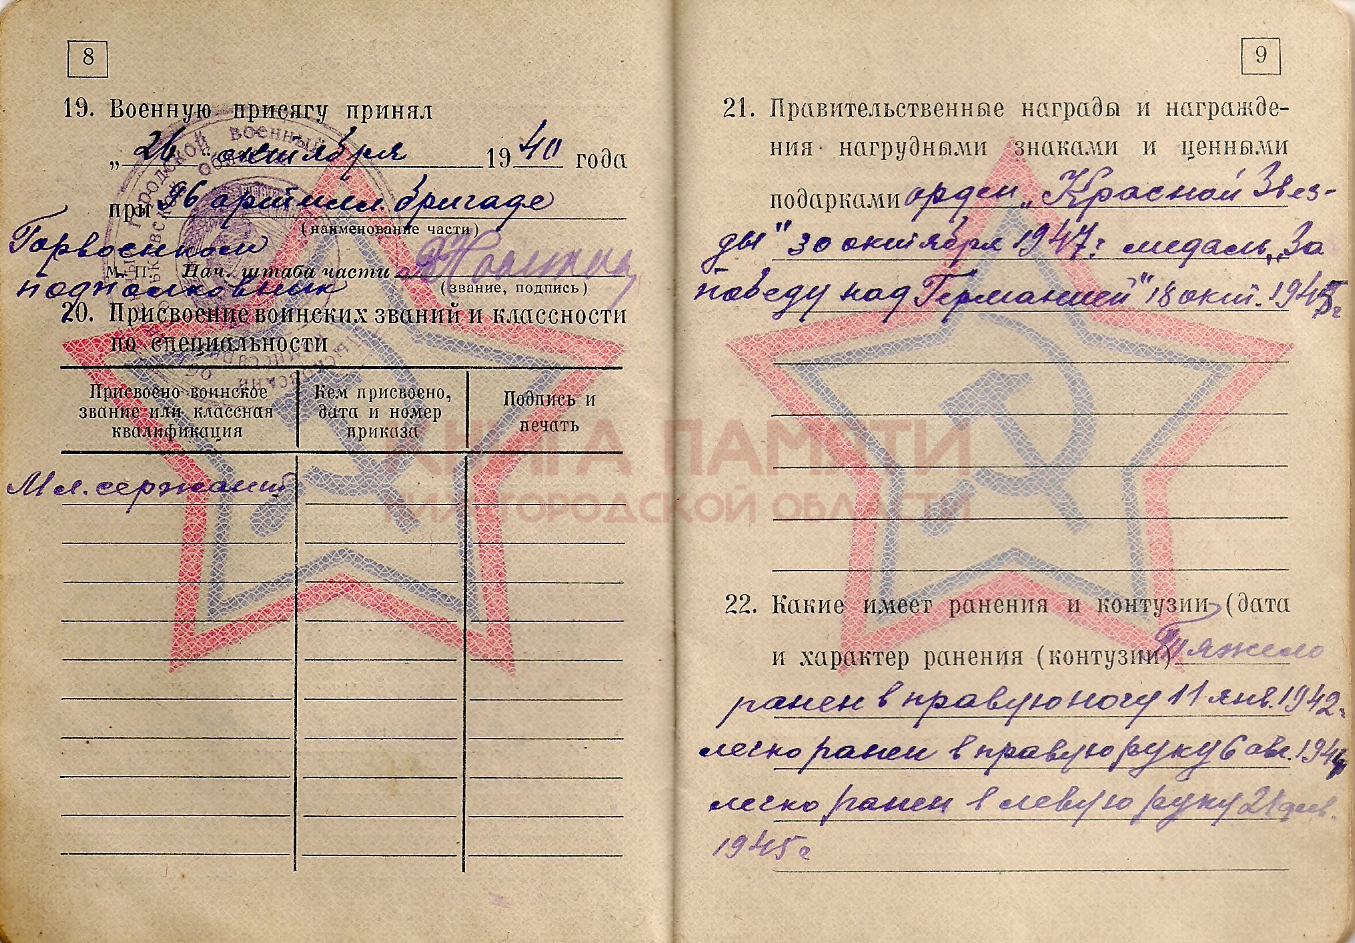 8
19. Военную присягу принял
„26" октября 1940 года
при 96 артилл. бригаде
(наименование части)
Горвоенком
М. П. Нач. штаба части
подполковник
(звание, подпись)
20. Присвоение воинских званий и классности
по специальности
Присвоено воинское
звание или классная
квалификация
Кем присвоено,
дата и номер
приказа
Подпись и
печать
Мл. сержант
9
21. Правительственные награды и награжде-
ния нагрудными знаками и ценными
подарками орден „Красной Звез-
ды" 30 октября 1947г. медаль „За
победу над Германией" 18 окт. 1945г
22. Какие имеет ранения и контузии (дата
и характер ранения (контузии) Тяжело
ранен в правую ногу 11 янв. 1942г.
легко ранен в правую руку 6 авг. 1944
легко ранен в левую руку 21 фев.
1945г
КНИГА ПАМЯТИ
НИЖЕГОРОДСКОЙ ОБЛАСТИ